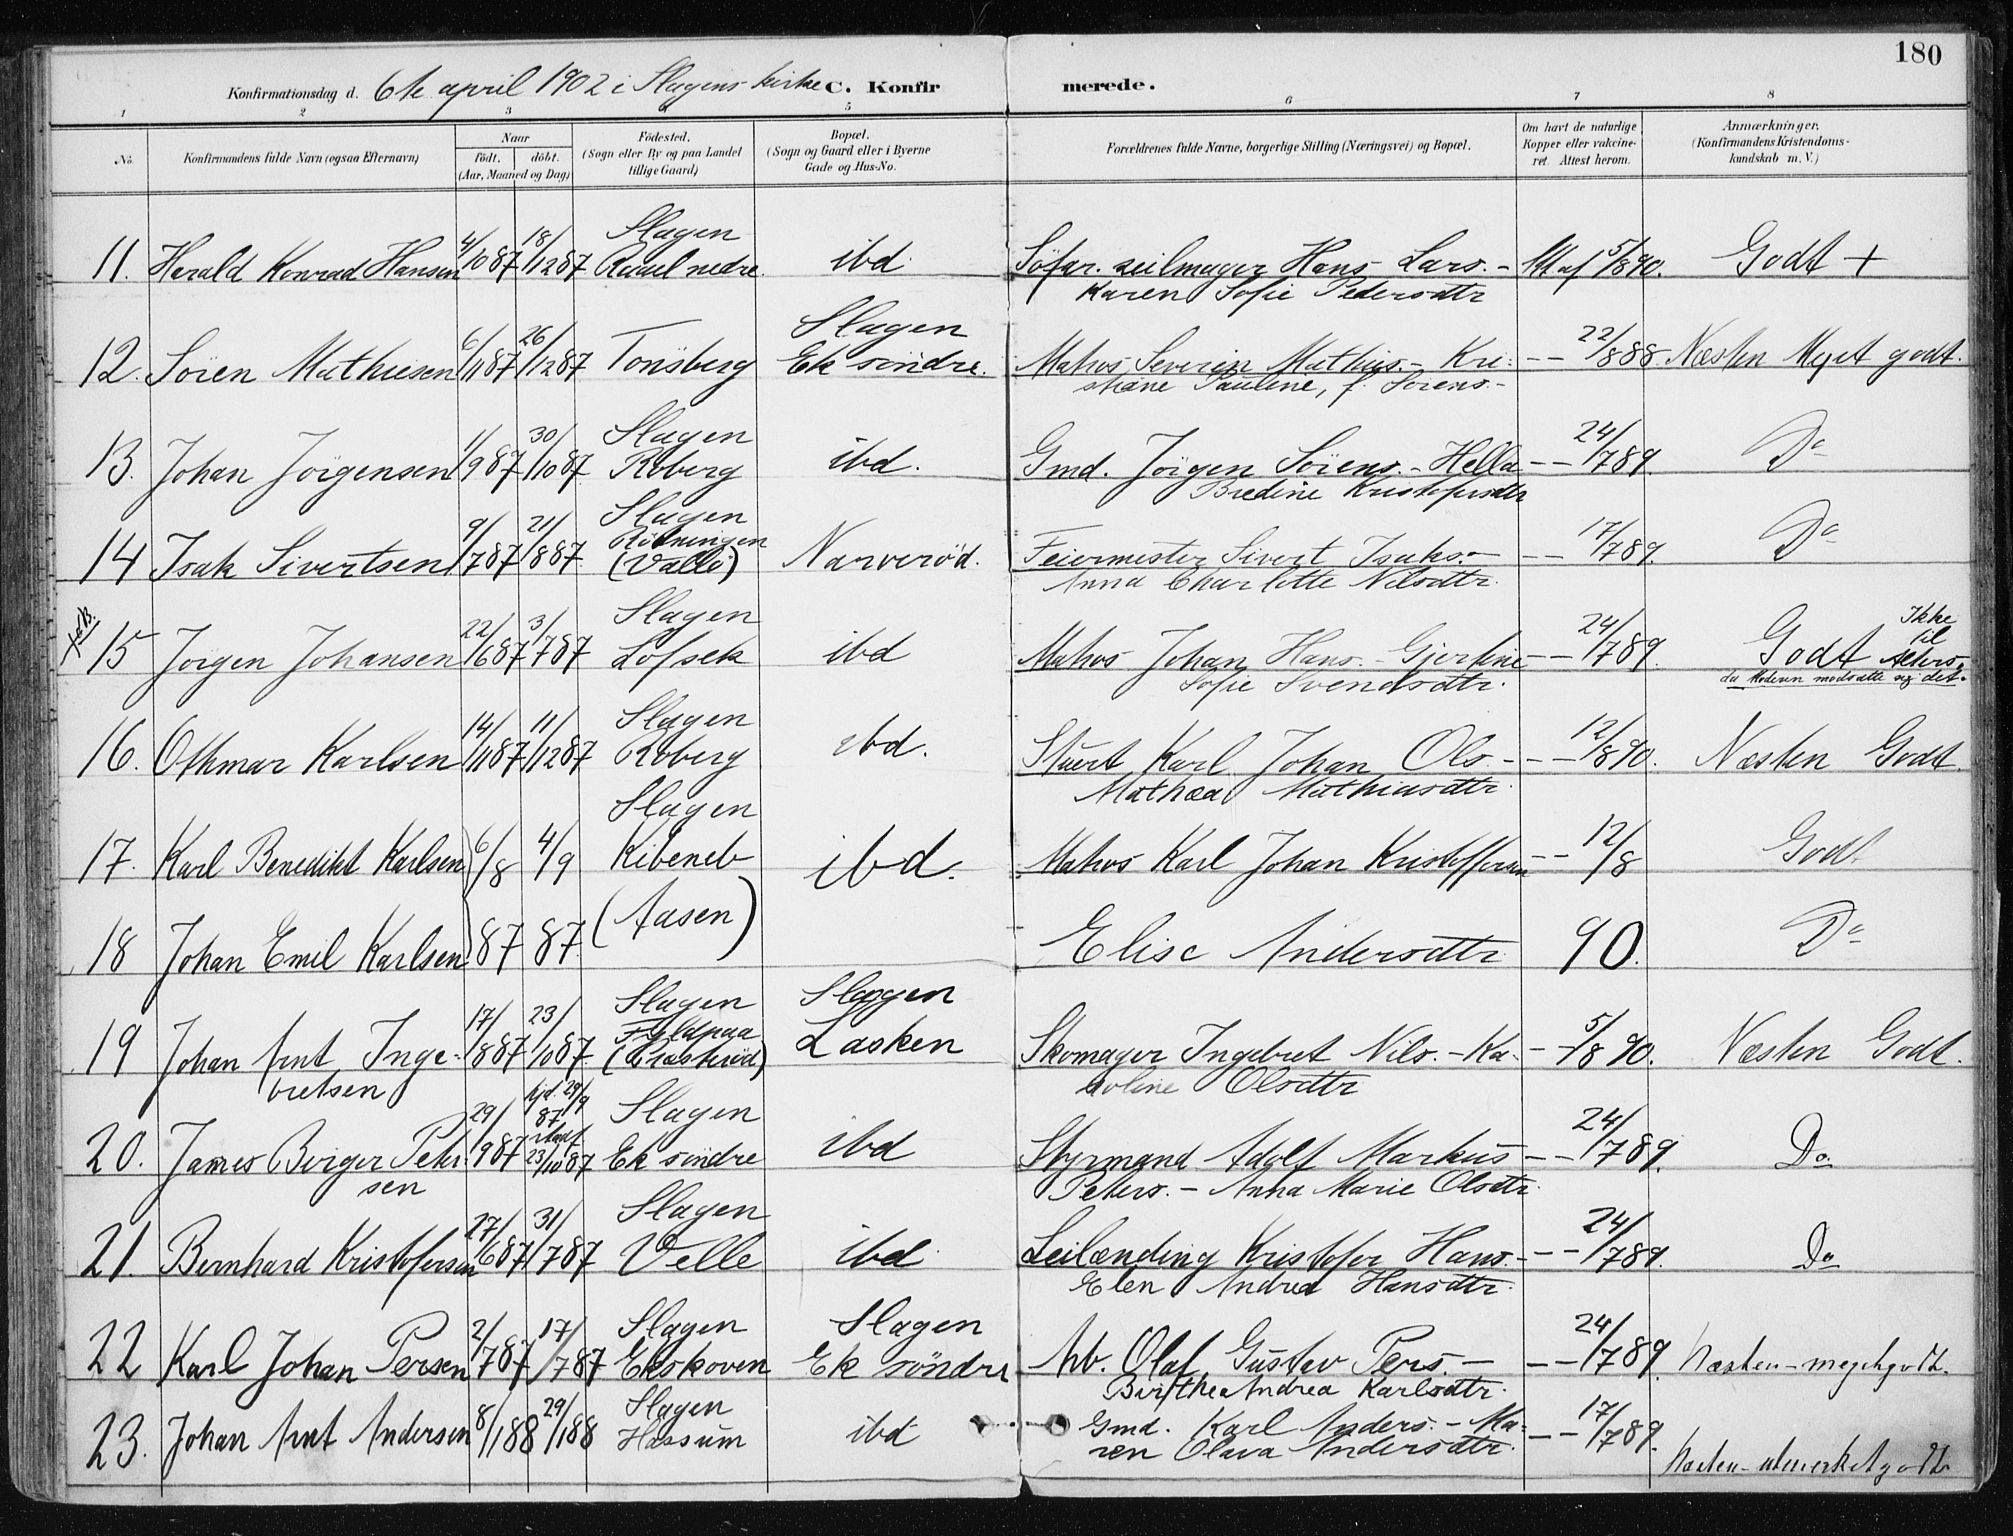 180
Konfirmationsdag d. 6te april 1902 i Slagens kirke C. Konfirmerede.
1 2 3 4 5 6 7 8
No. Konfirmandens fulde Navn (ogsaa Efternavn) Naar födt. döbt. (Aar, Maaned og Dag) Födested. (Sogn eller By og paa Landet tillige Gaard) Bopæl. (Sogn og Gaard eller i Byerne Gade og Hus-No. Forældrenes fulde Navne, borgerlige Stilling (Næringsvei) og Bopæl. Om havt de naturlige Kopper eller vakcineret. Attest herom. Anmærkninger. (Konfirmandens Kristendomskundskab m. V.)
Slagen
11. Harald Konrad Hansen 4/10 87 18/12 87 nedre ibd Söfar. seilmager Hans Lars. - Att af 5/8 90. Godt +
Karen Sofie Pedersdtr
Slagen
12. Sören Mathiesen 6/11 87 26/12 87 Tönsberg Ek söndre. Matros Severin Mathias. - Kri- - - 22/8 88. Næsten Meget godt.
stiane Pauline, f. Sörens. -
Slagen
13. Johan Jörgensen 1/9 87 30/10 87 Roberg ibd. Gmd. Jörgen Sörens. - Hella - - 24/7 89. Do
Bredine Kristofersdtr
Slagen
14 Isak Sivertsen 9/7 87 21/8 87 (Vallö) Narveröd. Feiermester Sivert Isaks. - - - 17/7 89. Do
Anna Charlotte Nilsdtr.
Slagen
15 Jörgen Johansen 22/6 87 3/7 87 Lofsek ibd Matros Johan Hans. - Gjertine - - 24/7 89. Godt Ikke til alters,
Sofie Svendsdtr. da Moderen modsatte sig det.
Slagen
16. Othmar Karlsen 14/11 87 11/12 87 Roberg ibd. Stuert Karl Johan Ols. - - - 12/8 90. Næsten Godt.
Mathea Mathiasdtr.
Slagen
17. Karl Benedikt Karlsen 6/8 4/9 Kibeneb ibd. Matros Karl Johan Kristoffersen - - 12/8 Godt
18 Johan Emil Karlsen 87 87. (Aasen) Elise Andersdtr 90. Do
Slagen Slagen
19 Johan Arnt Inge- 17/8 87 23/10 87 Fyldpaa Lasken Skomager Ingebret Nils. - Ka- - - 5/8 90. Næsten Godt.
bretsen (Træskeröd) roline Olsdtr
hjd. 29/9 87 Slagen
20. James Birger Peter- 29/9 87 23/10 87 Ek söndre ibd Styrmand Adolf Markus - - 24/7 89. Do
sen Peters. - Anna Marie Olsdtr.
Slagen
21. Bernhard Kristofersen 27/6 87 31/7 87 Velle ibd Leilænding Kristofer Hans. - - - 24/7 89. Do
Elen Andrea Hansdtr.
Slagen Slagen
22 Karl Johan Persen 2/7 87 17/7 87 Ekskoven Ek söndre Arb. Olaf Gustav Pers. - - - 24/7 89. Næsten-megetgodt.
Birthe Andrea Karlsdtr.
Slagen
23. Johan Arnt Andersen 8/1 88 29/1 88 Hassum ibd Gmd. Karl Anders. - Ma- - - 17/7 89. Næsten-utmerketgodt
ren Olava Andersdtr.